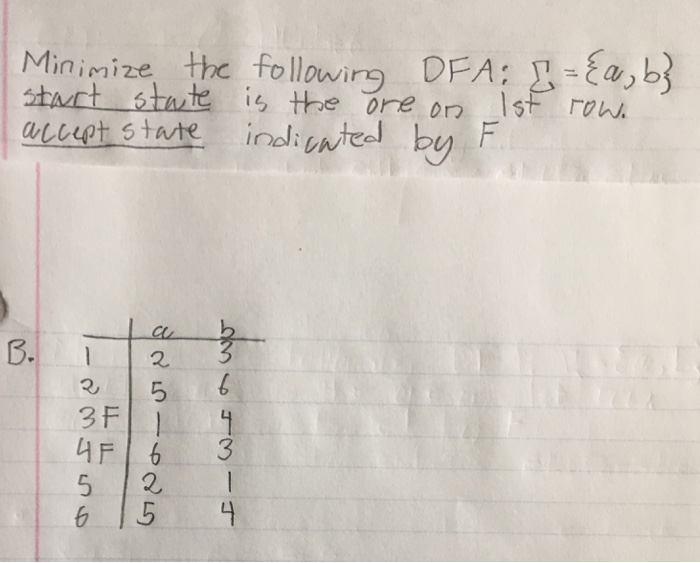 Minimize the following DFA: Σ = {a, b}
start state is the one on 1st row.
accept state indicated by F
a b
B. 1 2 3
2 5 6
3F 1 4
4F 6 3
5 2 1
6 5 4